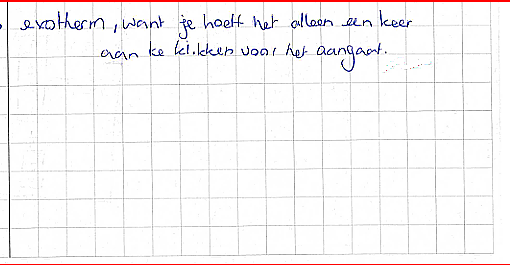 exotherm, want je hoeft het alleen een keer
aan te klikken voor het aangaat.